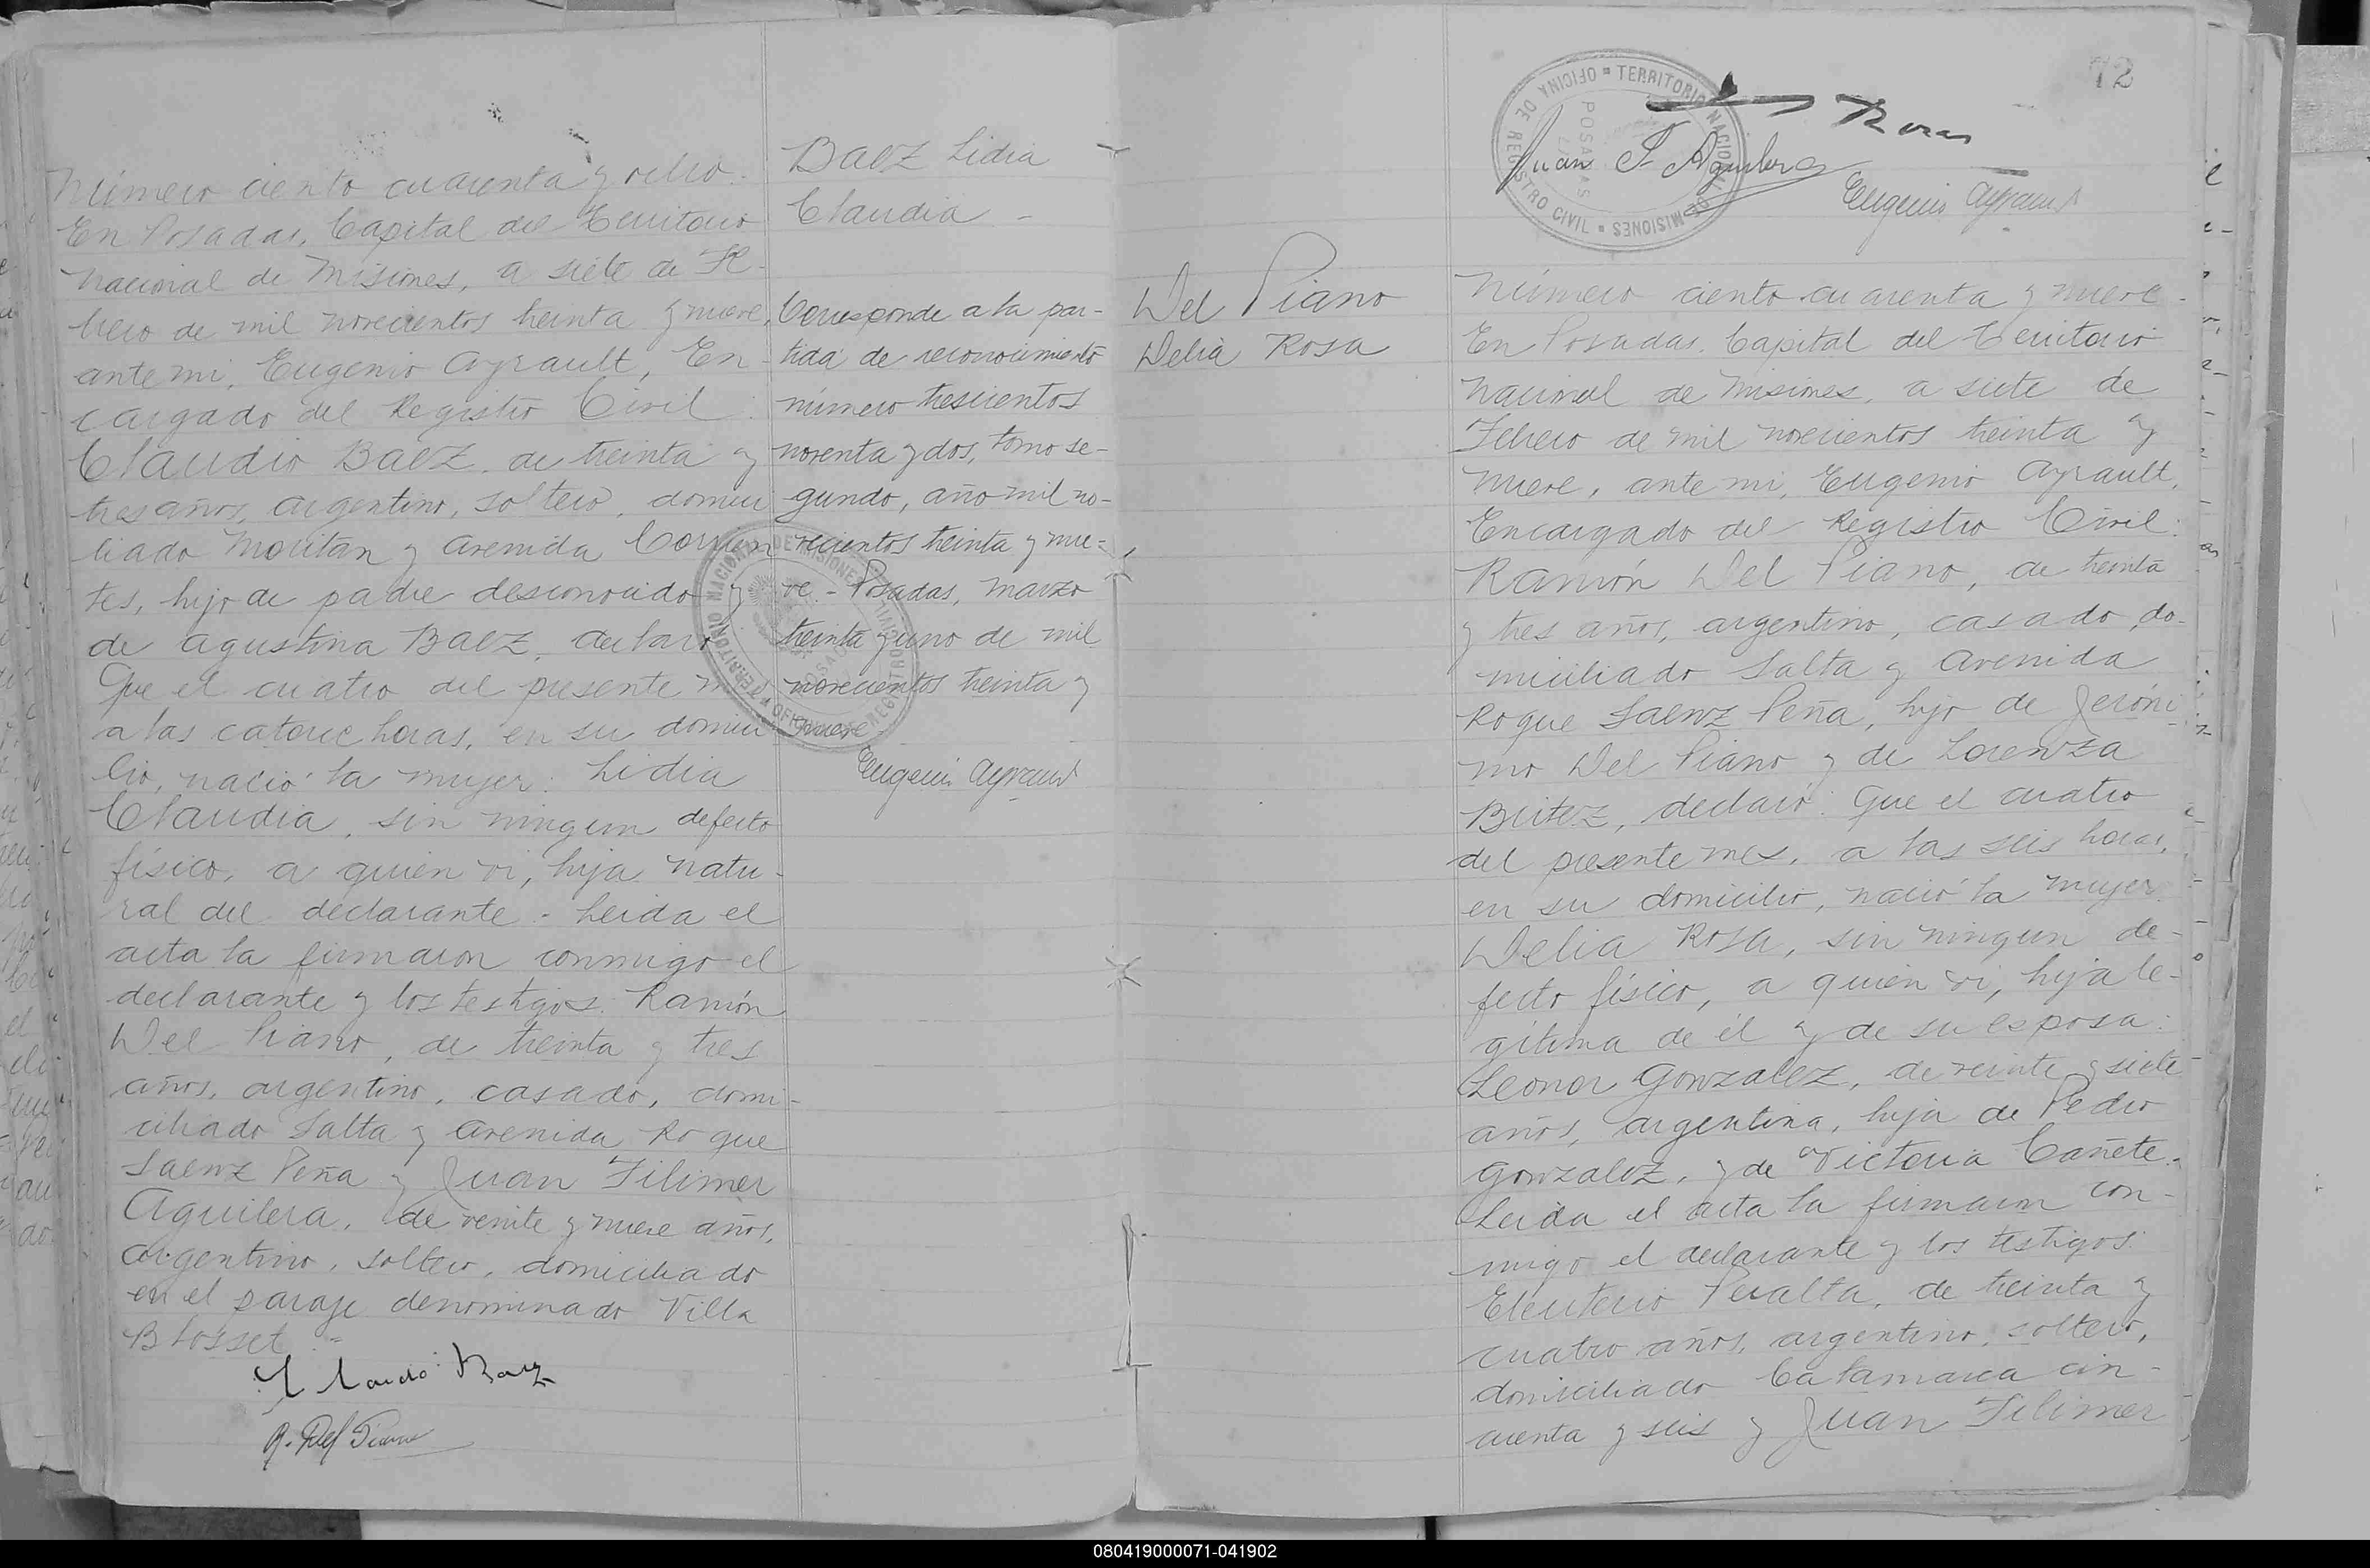 Número ciento cuarenta y ocho.
En Posadas, Capital del Territorio
Nacional de Misiones, a siete de Fe-
brero de mil novecientos treinta y nueve,
ante mi, Eugenio Ayrault, En-
cargado del Registro Civil:
Claudio Baez, de treinta y
tres años, argentino, soltero, domici
liado Moritán y Avenida Corrien
tes, hijo de padre desconocido y
de Agustina Baez, declaró
Que el cuatro del presente mes
a las catorce horas, en su domici
lio, nació la mujer: Lidia
Claudia, sin ningun defecto
físico, a quien vi, hija natu-
ral del declarante.- Leida el
acta la firmaron conmigo el
declarante y los testigos: Ramón
Del Piano, de treinta y tres
años, argentino, casado, domi-
ciliado Salta y Avenida Roque
Saenz Peña y Juan Filimer
Aguilera, de veinte y nueve años,
argentino, soltero, domiciliado
en el paraje denominado Villa
Blosset.-
Claudio Baez
R. Del Piano
Baez Lidia
Claudia -
Corresponde a la par-
tida de reconocimiento
número trescientos
noventa y dos, tomo se-
gundo, año mil no-
vecientos treinta y nue-
ve.- Posadas, marzo
treinta y uno de mil
novecientos treinta y
nueve.-
Eugenio Ayrault
TERRITORIO NACIONAL DE MISIONES
OFICINA DE REGISTRO CIVIL
POSADAS
72
OFICINA DE REGISTRO CIVIL
TERRITORIO NACIONAL DE MISIONES
POSADAS
Juan F. Aguilera
Eugenio Ayrault
Del Piano
Delia Rosa
Número ciento cuarenta y nueve.
En Posadas, Capital del Territorio
Nacional de Misiones, a siete de
Febrero de mil novecientos treinta y
nueve, ante mi, Eugenio Ayrault,
Encargado del Registro Civil:
Ramón Del Piano, de treinta
y tres años, argentino, casado, do-
miciliado Salta y Avenida
Roque Saenz Peña, hijo de Jeróni
mo Del Piano y de Lorenza
Britez, declaró: Que el cuatro
del presente mes, a las seis horas,
en su domicilio, nació la mujer:
Delia Rosa, sin ningun de-
fecto físico, a quien vi, hija le-
gítima de él y de su esposa:
Leonor Gonzalez, de veinte y siete
años, argentina, hija de Pedro
Gonzalez, y de Victoria Cañete.-
Leida el acta la firmaron con-
migo el declarante y los testigos:
Eleuterio Peralta, de treinta y
cuatro años, argentino, soltero,
domiciliado Catamarca cin-
cuenta y seis y Juan Filimer
080419000071-041902